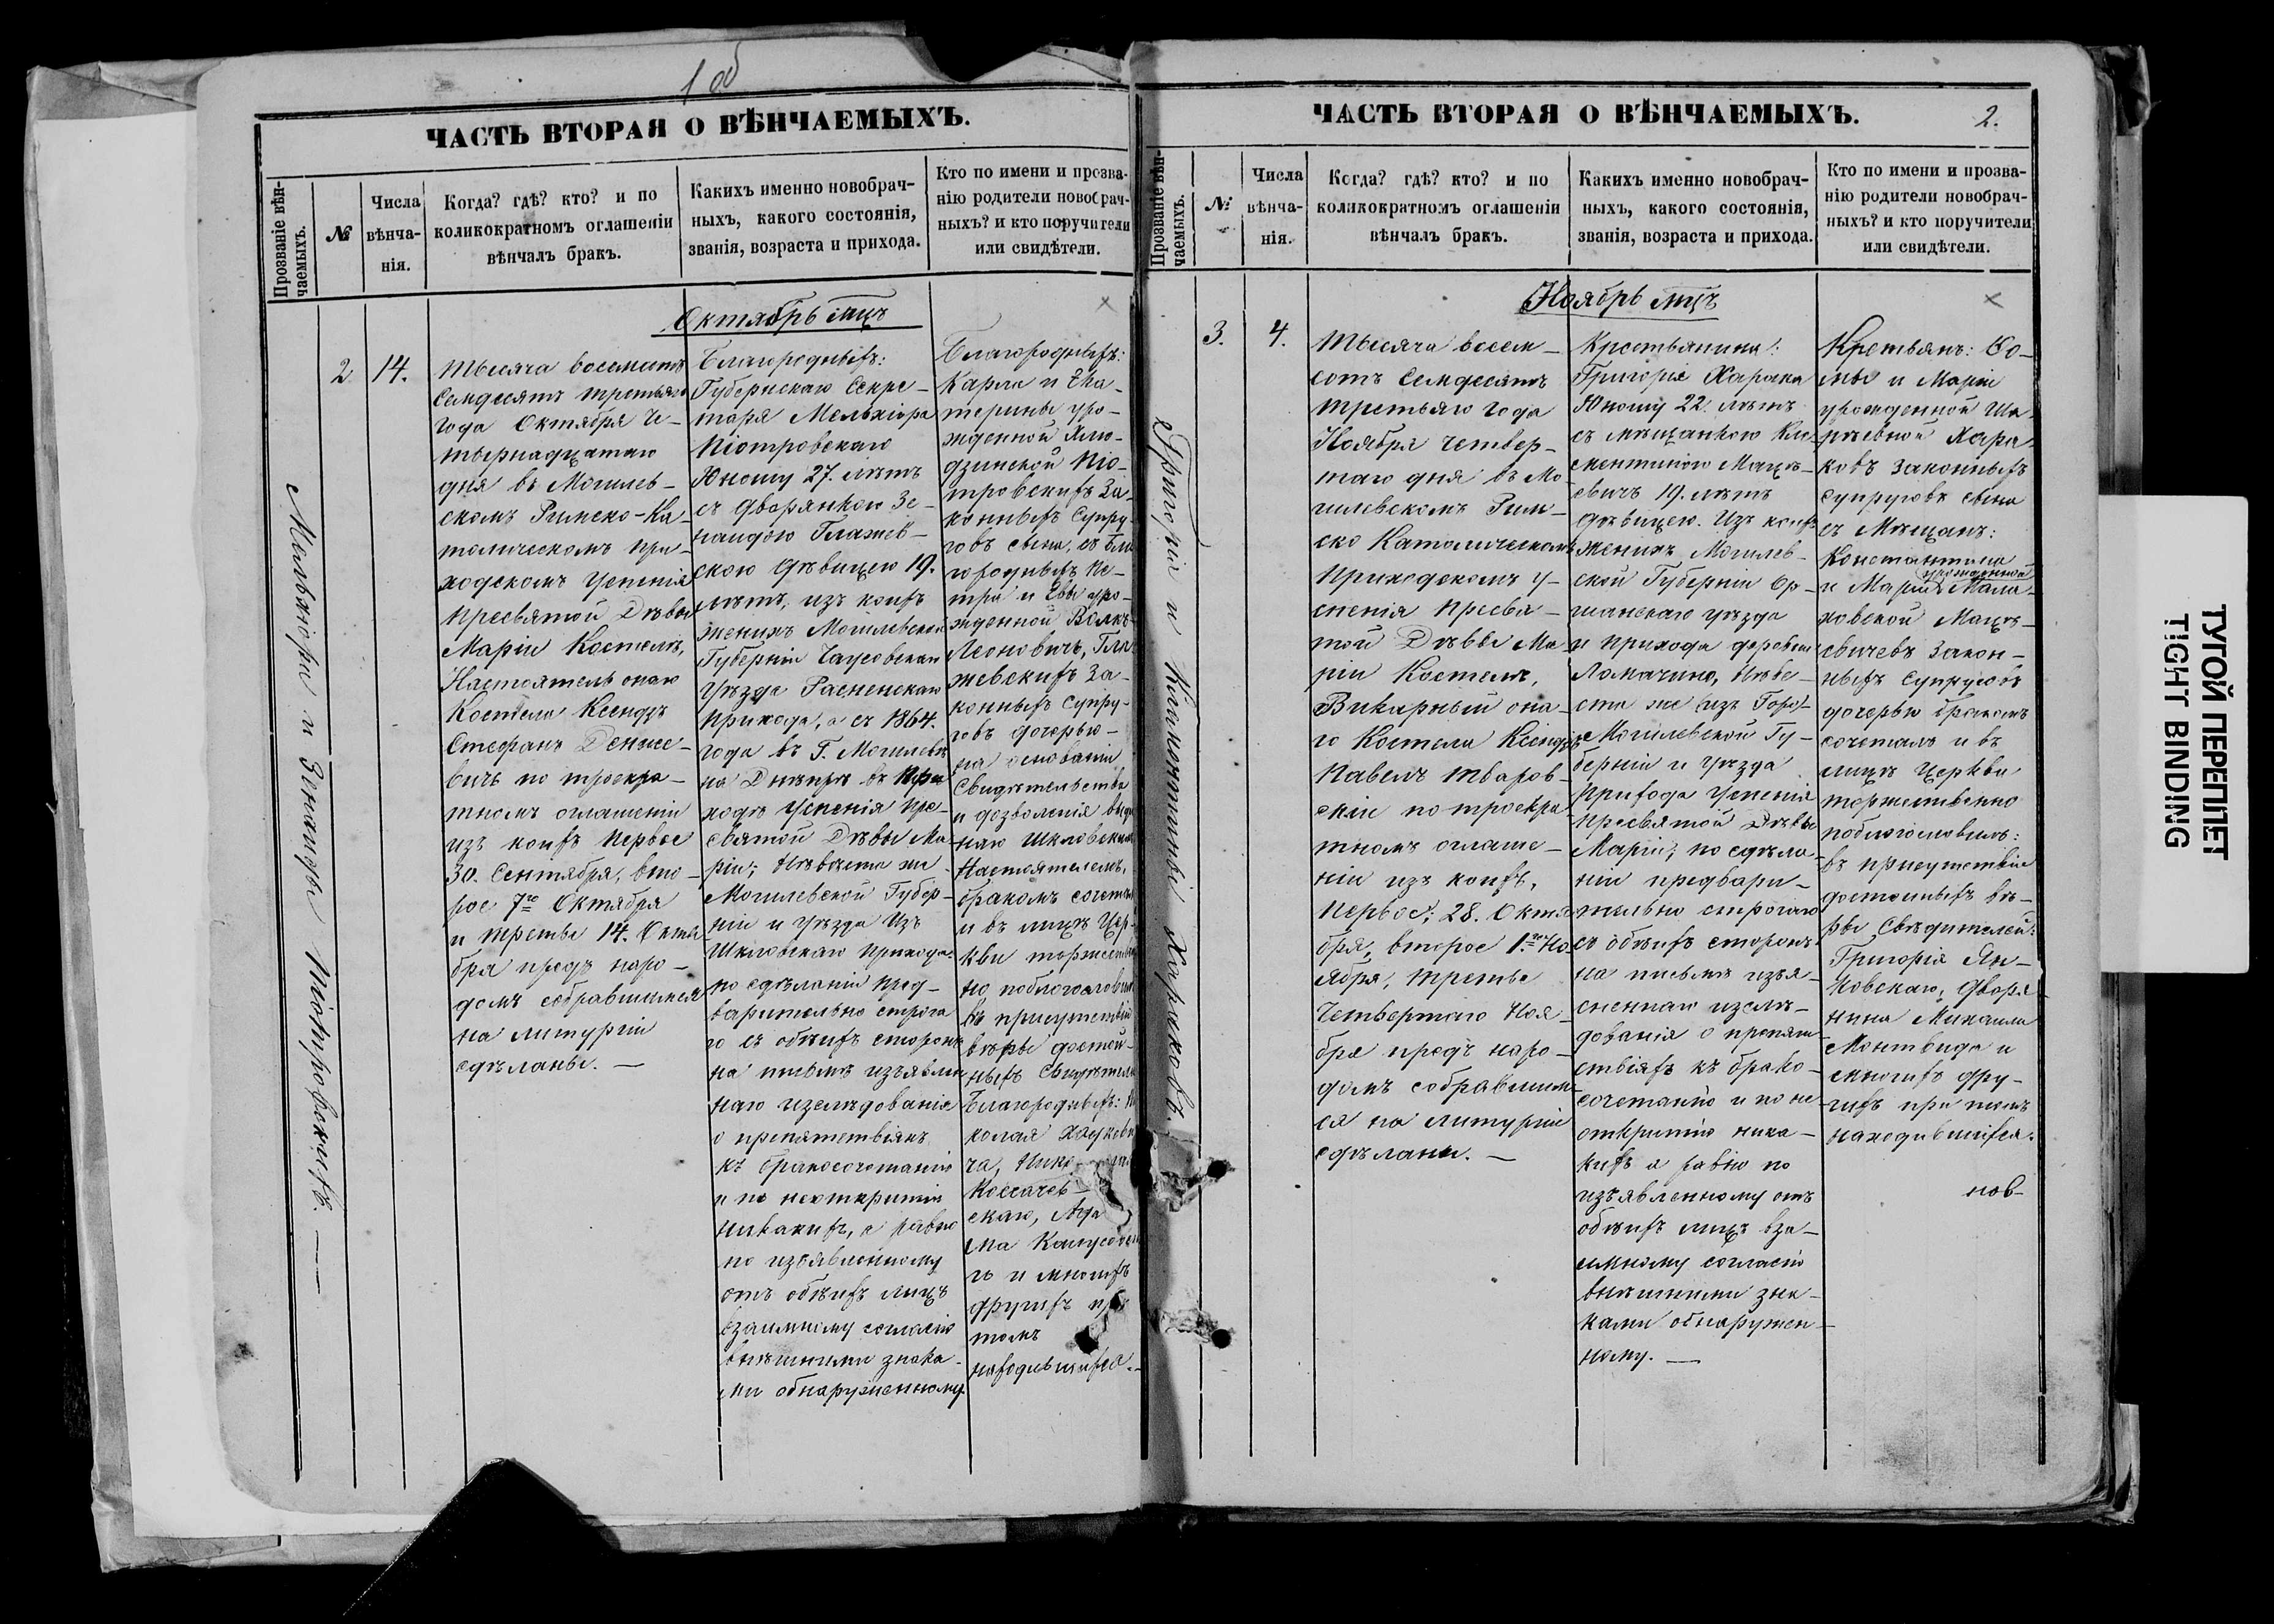 1 об
ЧАСТЬ ВТОРАЯ О ВѢНЧАЕМЫХЪ.
Прозваніе вѣн-
чаемыхъ.
№
Числа
вѣнча-
нія.
Когда? гдѣ? кто? и по
коликократномъ оглашеніи
вѣнчалъ бракъ.
Какихъ именно новобрач-
ныхъ, какого состоянія,
званія, возраста и прихода.
Кто по имени и прозва-
нію родители новобрач-
ныхъ? и кто поручители
или свидѣтели.
Октябрь мцъ
Мельхіора и Зенаиды Піотровскихъ.
2
14.
Тысяча восемьсотъ
Семдесятъ третьяго
года Октября че-
твернадцатаго
дня въ Могилев-
скомъ Римско-Ка-
толическомъ при-
ходскомъ Успенія
Пресвятой Дѣвы
Маріи Костелѣ,
Настоятель онаго
Костела Ксендзъ
Стефанъ Денисе-
вичъ по троекра-
тномъ оглашеніи
изъ коихъ первое
30. Сентября, вто-
рое 7го Октября
и третье 14. Октя
бря предъ наро-
домъ собравшимся
на литургіи
сдѣланы. —
Благородныхъ:
Губернскаго Секре-
таря Мельхіора
Піотровскаго
Юношу 27. лѣтъ
съ дворянкою Зе-
наидою Глажев-
скою дѣвицею 19.
лѣтъ, изъ коихъ
женихъ Могилевской
Губерніи Чаусовскаго
Уѣзда Расненскаго
прихода, а съ 1864.
года въ Г. Могилевѣ
на Днѣпрѣ въ При
ходѣ Успенія Пре-
святой Дѣвы Ма-
ріи; Невѣста же
Могилевской Губер-
ніи и Уѣзда Изъ
Шкловскаго прихода
по сдѣланіи пред-
варительно строга
го съ обѣихъ сторонъ
на письмѣ изъявлен
наго изслѣдованія
о препятствіяхъ
къ бракосочетанію
и по неоткрытіи
никакихъ, а равно
по изъявленному
отъ обѣихъ лицъ
взаимному согласію
внѣшними знака-
ми обнаруженному.
Благородныхъ:
Карла и Ека-
терины уро-
жденной
дзинской Піо-
тровскихъ За-
конныхъ Супру-
говъ сына, съ Бла
городныхъ Пе-
тра и Евы уро-
жденной Волкъ-
Леоновичъ, Гла-
жевскихъ За-
конныхъ Супру-
говъ дочерью —
на основаніи
Свидѣтельства
и дозволенія выдан
наго Шкловскимъ
Настоятелемъ,
бракомъ сочеталъ
и въ лицѣ Цер-
кви торжествен
но поблагословилъ
въ присутствіи
вѣры достой-
ныхъ Свидѣтелей
Благородныхъ: Ни
колая
ча,
Коссачев-
скаго, Ада
ма
и многихъ
другихъ при
томъ
находившихся. —
ЧАСТЬ ВТОРАЯ О ВѢНЧАЕМЫХЪ.
2.
Прозваніе вѣн-
чаемыхъ.
№
Числа
вѣнча-
нія.
Когда? гдѣ? кто? и по
коликократномъ оглашеніи
вѣнчалъ бракъ.
Какихъ именно новобрач-
ныхъ, какого состоянія,
званія, возраста и прихода.
Кто по имени и прозва-
нію родители новобрач-
ныхъ? и кто поручители
или свидѣтели.
Ноябрь мцъ
Григорія и Климентины Хараковъ.
3.
4.
Тысяча восем-
сотъ Семдесятъ
третьяго года
Ноября четвер-
таго дня въ Мо
гилевскомъ Рим-
ско Католическомъ
Приходскомъ У-
спенія Пресвя-
той Дѣвы Ма-
ріи Костелѣ,
Викарный она-
го Костела Ксендзъ
Павелъ Тваров-
скій по троекра
тномъ оглаше-
ніи изъ коихъ,
Первое; 28. Октя
бря, второе 1го Но-
ября, третье
Четвертаго Ноя-
бря предъ наро-
домъ собравшим-
ся на литургіи
сдѣланы. —
Крестьянина:
Григорія Харака
Юношу 22. лѣтъ
съ мѣщанкою Кли-
ментиною Мацке-
евичъ 19. лѣтъ
дѣвицею. Изъ коихъ
женихъ, Могилев-
ской Губерніи Ор-
шанскаго уѣзда
и прихода деревни
Ломачина, Невѣ-
ста же изъ Горо-
Могилевской Гу-
берніи и Уѣзда
Прихода Успенія
Пресвятой Дѣвы
Маріи; по сдѣла-
ніи предвари-
тельно строгаго
съ обѣихъ сторонъ
на письмѣ изъя-
сненнаго изслѣ-
дованія о препят
ствіяхъ къ брако-
сочетанію и по не
открытію ника-
кихъ а равно по
изъявленному отъ
обѣихъ лицъ вза-
имному согласію
внѣшними зна-
ками обнаружен-
ному. —
Крестьянъ: Фо-
мы и Маріи
урожденной
Хара-
ковъ законныхъ
супруговъ сына
съ Мѣщанъ:
Константина
урожденной
и Маріи Мала-
ховской Мацке-
евичевъ Закон-
ныхъ Супруговъ
дочерью бракомъ
сочеталъ и въ
лицѣ Церкви
торжественно
поблагословилъ:
въ присутствіи
достойныхъ вѣ-
ры Свѣдителей:
Григорія Ян-
ковскаго, Дворя-
нина Михаила
Монтвида и
многихъ дру-
гихъ при томъ
находившихся.
нов-
ТУГОЙ ПЕРЕПЛЕТ
TIGHT BINDING